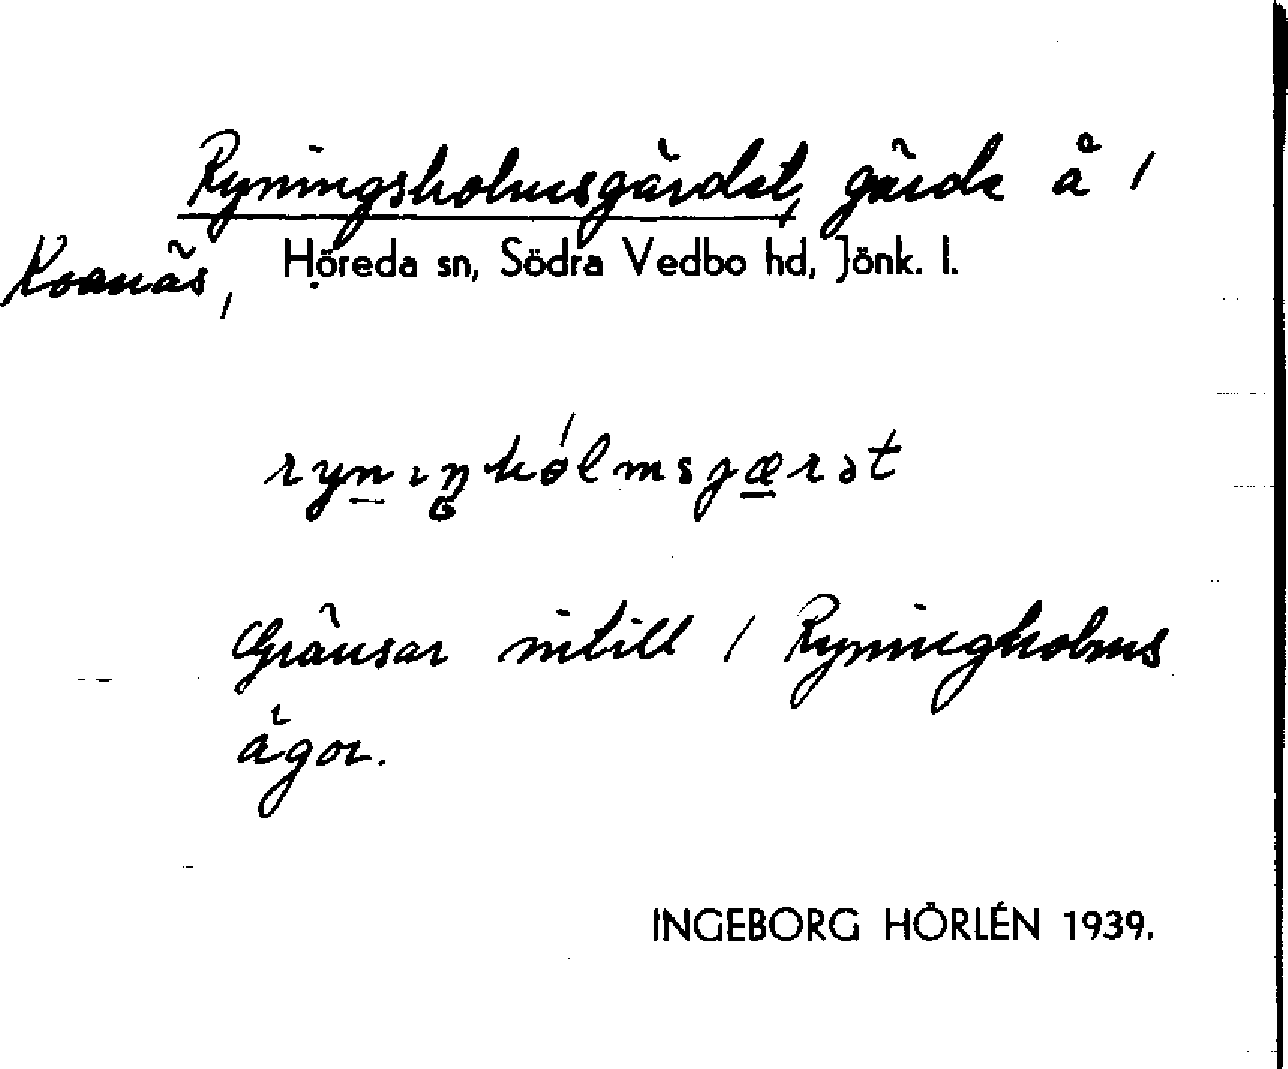 Ryningsholmsgärdet, gärde å /
Kvanäs,
Höreda sn, Södra Vedbo hd, Jönk. l.
Gränsar intill / Ryningholms
ägor.
INGEBORG HÖRLÉN 1939.